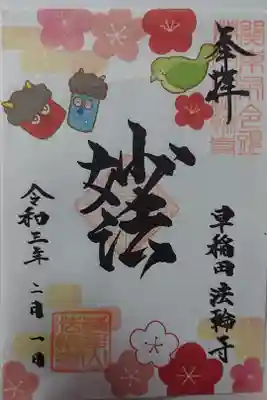 奉拝
妙法
早稲田 法輪寺
令和三年 二月 一日